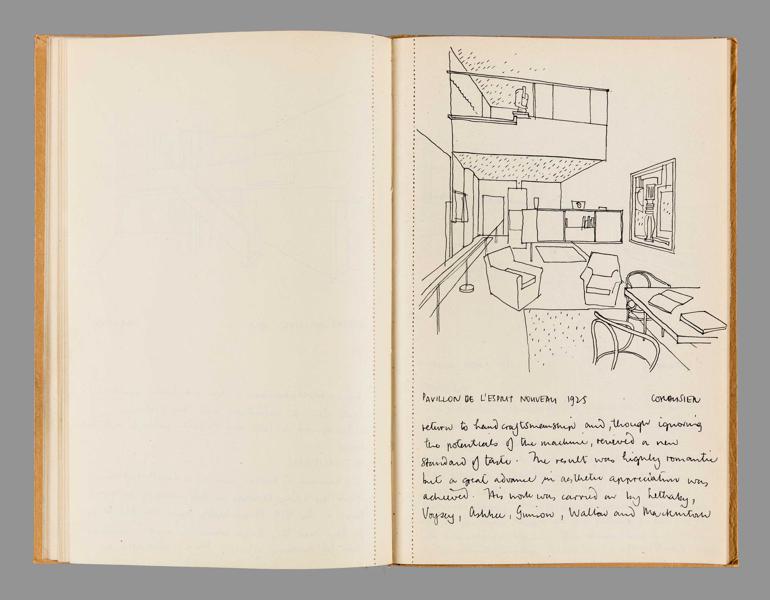 PAVILLON DE L'ESPRIT NOUVEAU 1925 CORBUSIER
return to handcraftsmanship and, though ignoring
the potentials of the machine, renewed a new
standard of taste. The result was highly romantic
but a great advance in aesthetic appreciation was
achieved. His work was carried on by Lethaby,
Voysey, Ashbee, Gimson, Walton and Mackintosh